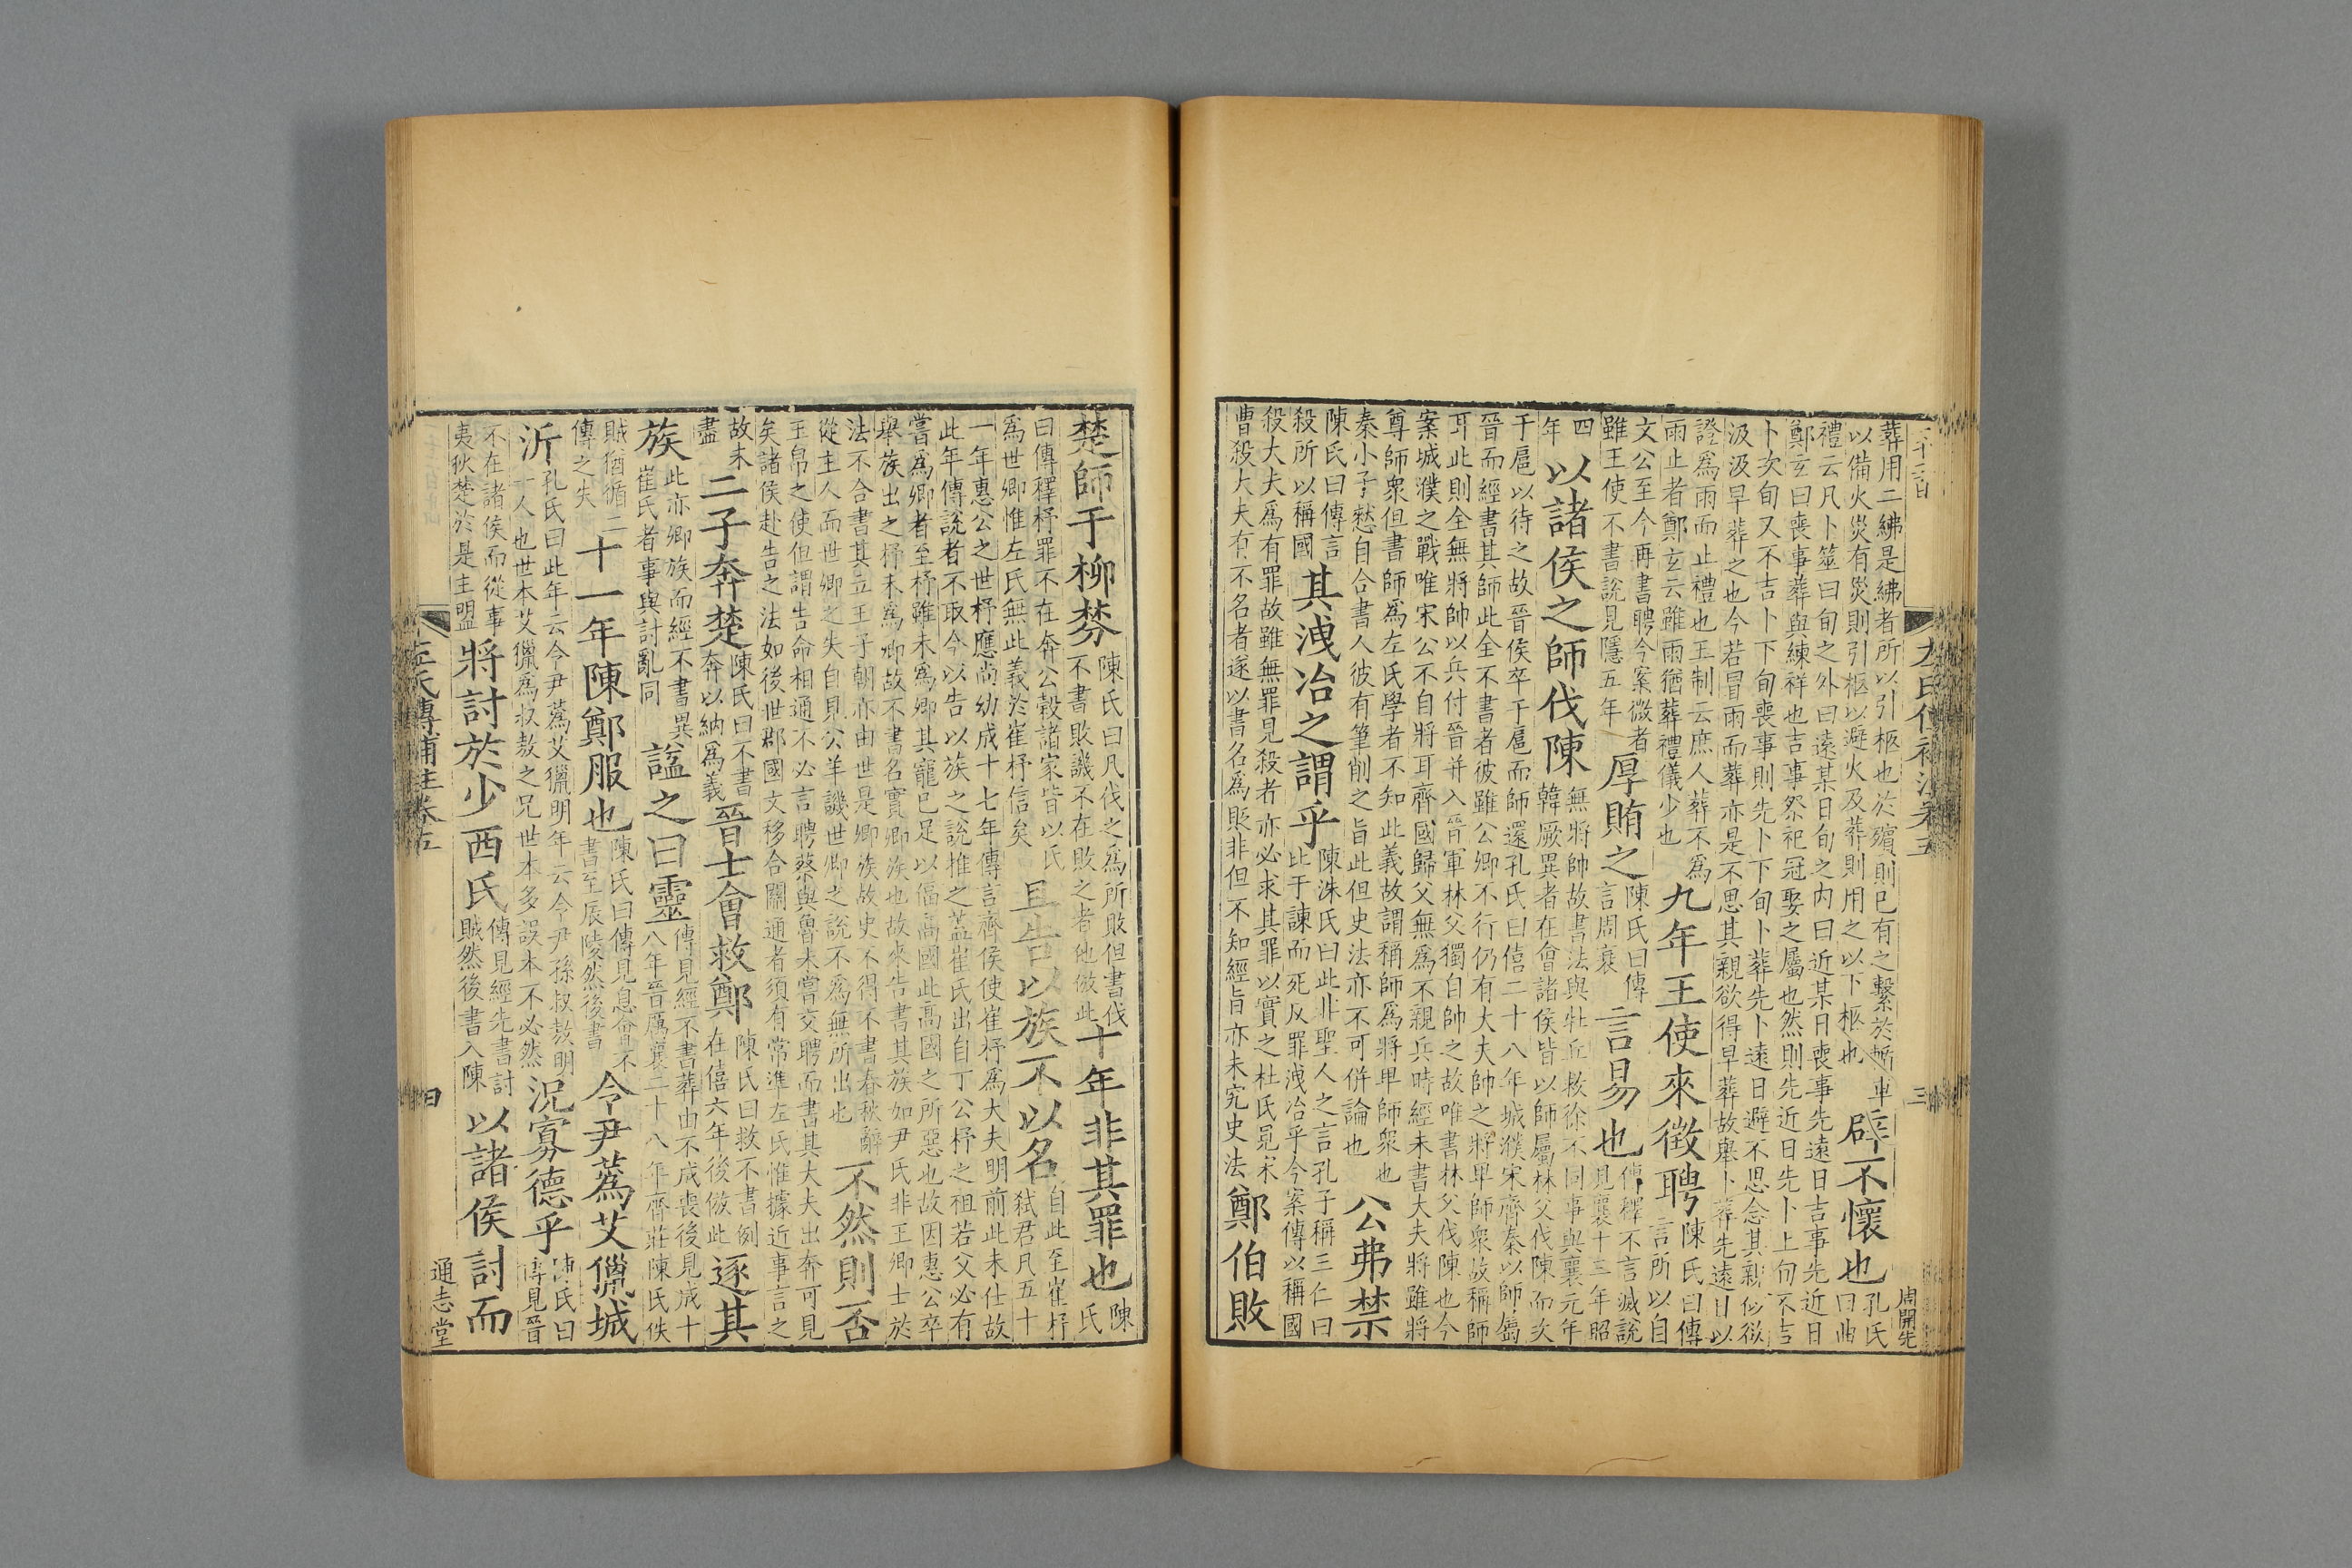 葬用二紼是紼者所以引柩也於殯則已有之繫於輴車
以備火災有災則引柩以避火及葬則用之以下柩也
辟不懷也
孔氏
曰曲
禮云凡卜筮曰旬之外曰遠某日旬之内曰近某日喪事先遠日吉事先近日
鄭玄曰喪事葬與練祥也吉事祭祀冠娶之屬也然則先近日先卜上旬不吉
卜次旬又不吉卜下旬喪事則先卜下旬卜葬先卜遠日避不思念其親似欲
汲汲早葬之也今若冒雨而葬亦是不思其親欲得早葬故舉卜葬先遠日以
證爲雨而止禮也王制云庶人葬不爲
雨止者鄭玄云雖雨猶葬禮儀少也
九年王使來徵聘
陳氏曰傳
言所以自
文公至今再書聘今案微者
雖王使不書説見隱五年
厚賄之
陳氏曰傳
言周衰
言易也
傳釋不言滅説
見襄十三年昭
四
年
以諸侯之師伐陳
無將帥故書法與牡丘救徐不同事與襄元年
韓厥異者在會諸侯皆以師屬林父伐陳而次
于扈以待之故晉侯卒于扈而師還孔氏曰僖二十八年城濮宋齊秦以師屬
晉而經書其師此全不書者彼雖公卿不行仍有大夫帥之將卑師衆故稱師
耳此則全無將帥以兵付晉并入晉軍林父獨自帥之故唯書林父伐陳也今
案城濮之戰唯宋公不自將耳齊國歸父無爲不親兵時經未書大夫將雖將
尊師衆但書師爲左氏學者不知此義故謂稱師爲將卑師衆也
秦小子憖自合書人彼有筆削之旨此但史法亦不可併論也
公弗禁
陳氏曰傳言
殺所以稱國
其洩冶之謂乎
陳洙氏曰此非聖人之言孔子稱三仁曰
比干諫而死反罪洩冶乎今案傳以稱國
殺大夫爲有罪故雖無罪見殺者亦必求其罪以實之杜氏見宋
曹殺大夫有不名者遂以書名爲貶非但不知經旨亦未究史法
鄭伯敗
楚師于柳棼
陳氏曰凡伐之爲所敗但書伐
不書敗譏不在敗之者他倣此
十年非其罪也
陳
氏
曰傳釋杼罪不在奔公穀諸家皆以氏
爲世卿惟左氏無此義於崔杼信矣
且告以族不以名
自此至崔杼
弑君凡五十
一年惠公之世杼應尚幼成十七年傳言齊侯使崔杼爲大夫明前此未仕故
此年傳説者不取今以告以族之説推之蓋崔氏出自丁公杼之祖若父必有
嘗爲卿者至杼雖未爲卿其寵已足以偪高國此高國之所惡也故因惠公卒
舉族出之杼未爲卿故不書名實卿族也故來告書其族如尹氏非王卿士於
法不合書其立王子朝亦由世是卿族故史不得不書春秋辭
從主人而世卿之失自見公羊譏世卿之説不爲無所出也
不然則否
玉帛之使但謂告命相通不必言聘蔡與魯未嘗交聘而書其大夫出奔可見
矣諸侯赴告之法如後世郡國文移合關通者須有常準左氏惟據近事言之
故未
盡
二子奔楚
陳氏曰不書
奔以納爲義
晉士會救鄭
陳氏曰救不書例
在僖六年後倣此
逐其
族
此亦卿族而經不書異
崔氏者事與討亂同
謚之曰靈
傳見經不書葬由不成喪後見成十
八年晉厲襄二十八年齊莊陳氏佚
賊猶循
傳之失
二十一年陳鄭服也
陳氏曰傳見息侖不
書至辰陵然後書
令尹蒍艾獵城
沂
孔氏曰此年云令尹蒍艾獵明年云令尹孫叔敖明
一人也世本艾獵爲叔敖之兄世本多誤本不必然
況寡德乎
陳氏曰
傳見晉
不在諸侯而從事
夷狄楚於是主盟
將討於少西氏
傳見經先書討
賊然後書入陳
以諸侯討而
左氏傳補注卷五
三
周開先
左氏傳補注卷五
四
通志堂